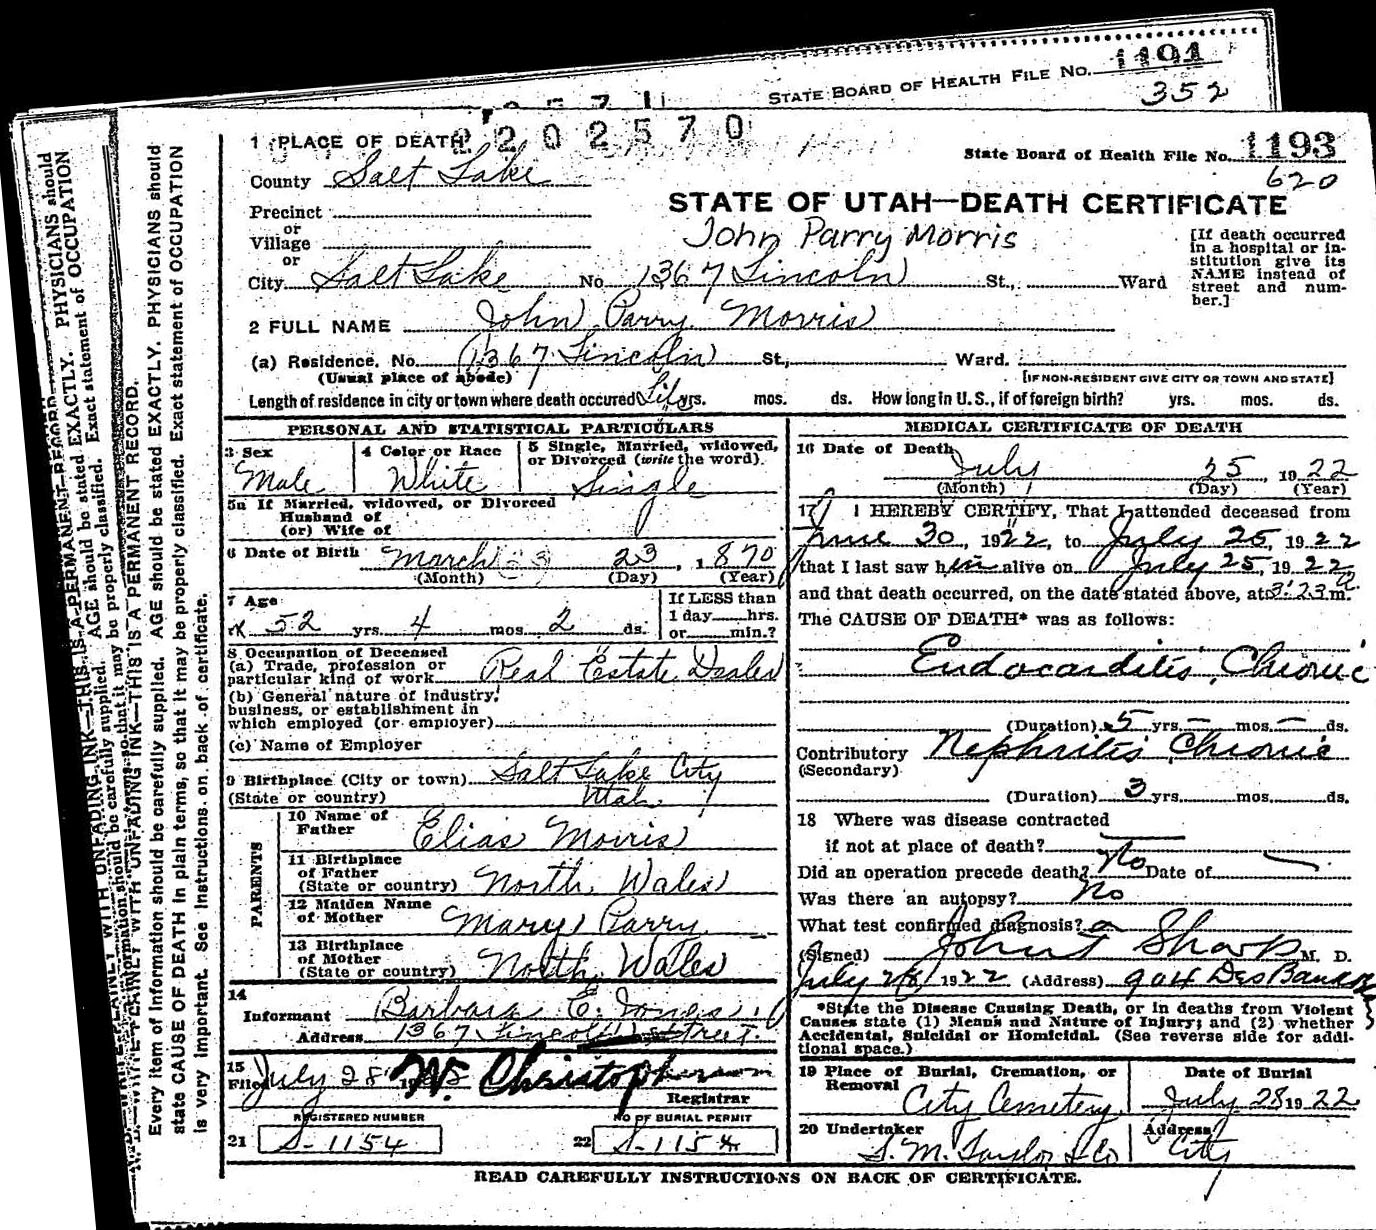 STATE BOARD OF HEALTH FILE NO. 1191
352
2202570
1 PLACE OF DEATH
State Board of Health File No. 1193
620
County Salt Lake
STATE OF UTAH—DEATH CERTIFICATE
Precinct
or
Village
or
John Parry Morris
[If death occurred in a hospital or institution give its NAME instead of street and number.]
City Salt Lake No 1367 Lincoln St., Ward
2 FULL NAME John Parry Morris
(a) Residence. No. 1367 Lincoln St, Ward.
(Usual place of abode)
[IF NON-RESIDENT GIVE CITY OR TOWN AND STATE]
Length of residence in city or town where death occured Life yrs. mos. ds. How long in U. S., if of foreign birth? yrs. mos. ds.
PERSONAL AND STATISTICAL PARTICULARS
3 Sex
Male
4 Color or Race
White
5 Single, Married, widowed, or Divorced (write the word)
Single
5a If Married, widowed, or Divorced
Husband of
(or) Wife of
6 Date of Birth March 23 23, 1870
(Month) (Day) (Year)
7 Age
52 yrs. 4 mos. 2 ds.
If LESS than
1 day hrs.
or min.?
8 Occupation of Deceased
(a) Trade, profession or
particular kind of work Real Estate Dealer
(b) General nature of industry,
business, or establishment in
which employed (or employer)
(c) Name of Employer
9 Birthplace (City or town) Salt Lake City
(State or country) Utah
PARENTS
10 Name of
Father Elias Morris
11 Birthplace
of Father
(State or country) North Wales
12 Maiden Name
of Mother Mary Parry
13 Birthplace
of Mother
(State or country) North Wales
14
Informant Barbara E. Jones
Address 1367 Lincoln Street.
15
Filed July 28 W. Christopherson
Registrar
REGISTERED NUMBER
21 S-1154
NO OF BURIAL PERMIT
22 S-1154
MEDICAL CERTIFICATE OF DEATH
16 Date of Death
July 25, 1922
(Month) (Day) (Year)
17 I HEREBY CERTIFY, That I attended deceased from
June 30, 1922, to July 25, 1922
that I last saw him alive on July 25, 1922
and that death occurred, on the date stated above, at 3:23 a m.
The CAUSE OF DEATH* was as follows:
Endocarditis, Chronic
(Duration) 5 yrs. — mos. — ds.
Contributory Nephritis Chronic
(Secondary)
(Duration) 3 yrs. mos. ds.
18 Where was disease contracted
if not at place of death?
Did an operation precede death? No Date of
Was there an autopsy? No
What test confirmed diagnosis?
(Signed) Sharp M. D.
July 1922 (Address) 904 Des
*State the Disease Causing Death, or in deaths from Violent
Causes state (1) Means and Nature of Injury; and (2) whether
Accidental, Suicidal or Homicidal. (See reverse side for addi-
tional space.)
19 Place of Burial, Cremation, or
Removal
City Cemetery
Date of Burial
July 28 1922
20 Undertaker
S. M. Taylor & Co
Address
City
READ CAREFULLY INSTRUCTIONS ON BACK OF CERTIFICATE.
WITH UNFADING INK—THIS IS A PERMANENT RECORD.
Every item of information should be carefully supplied. AGE should be stated EXACTLY. PHYSICIANS should
state CAUSE OF DEATH in plain terms, so that it may be properly classified. Exact statement of OCCUPATION
is very important. See instructions on back of certificate.